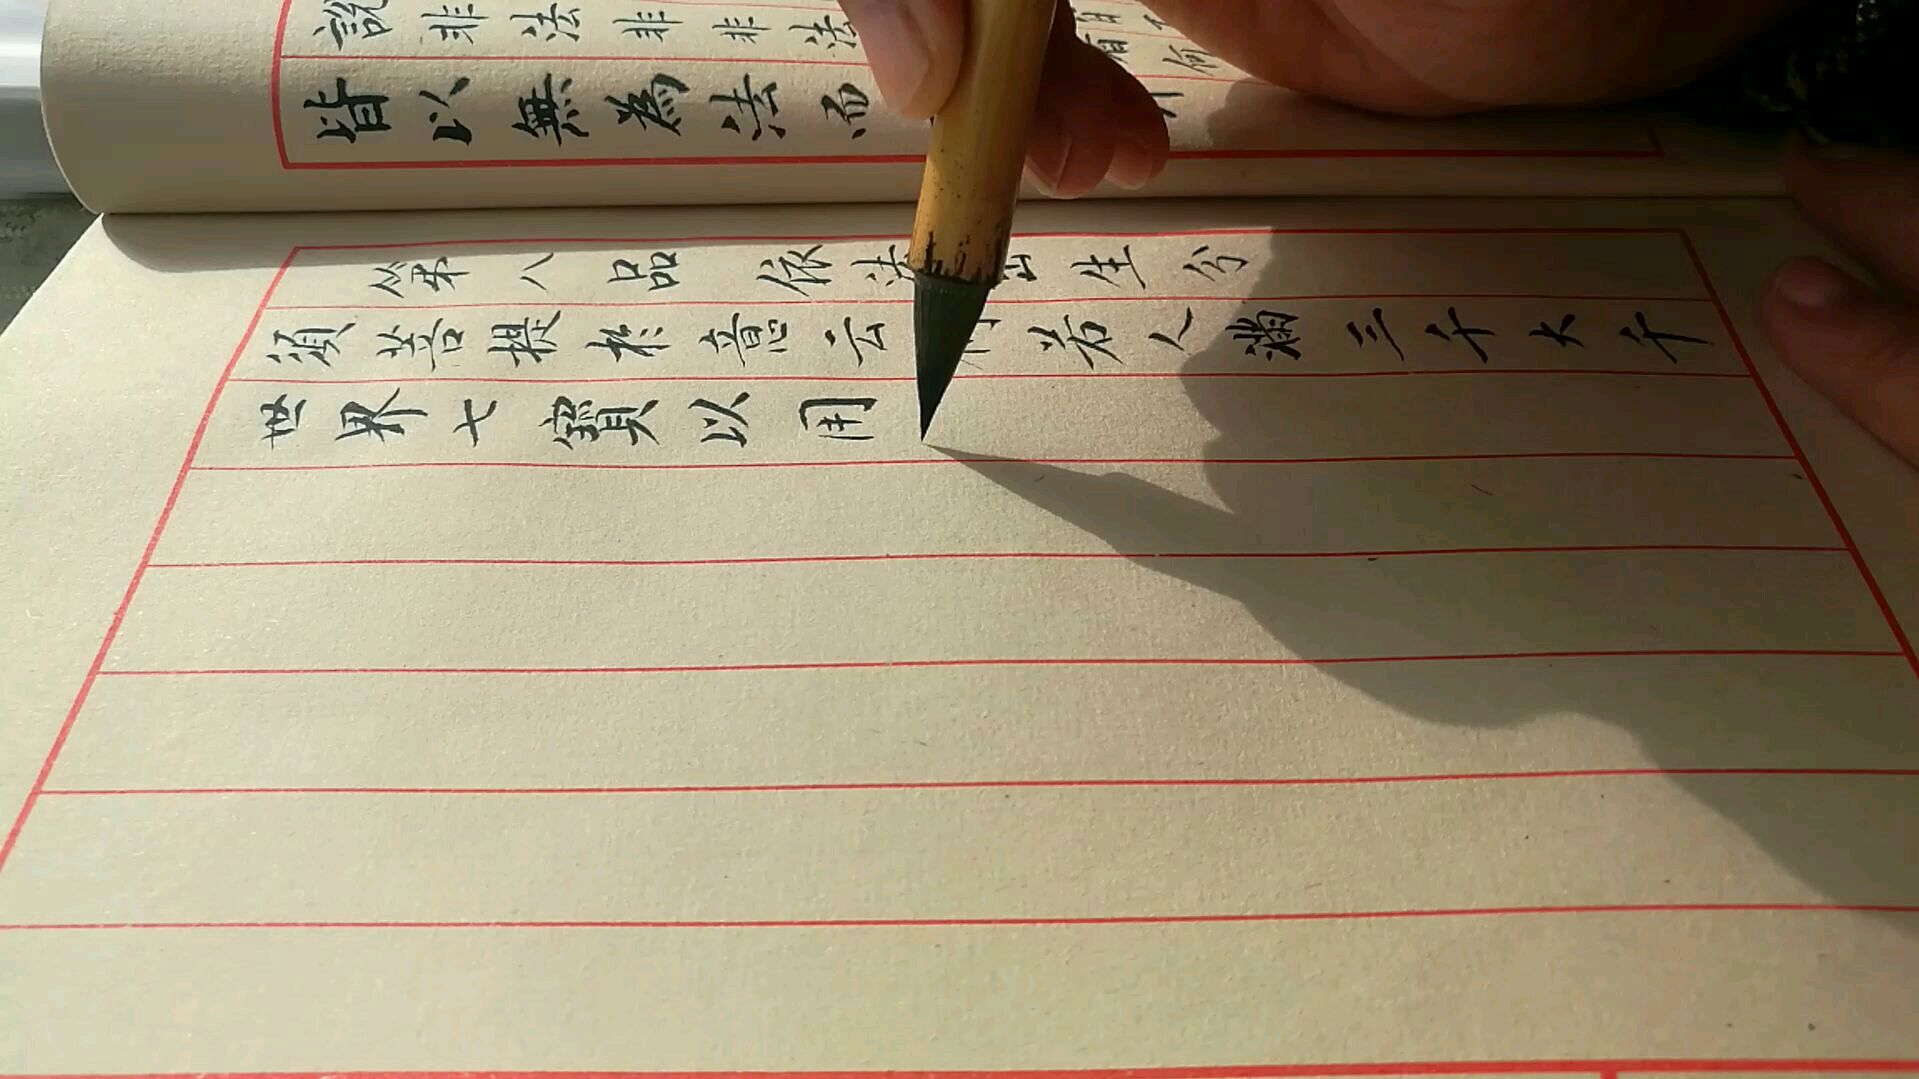 說非法非非法
皆以無為法而
第八品 依法出生分
須菩提於意云何若人滿三千大千
世界七寶以用